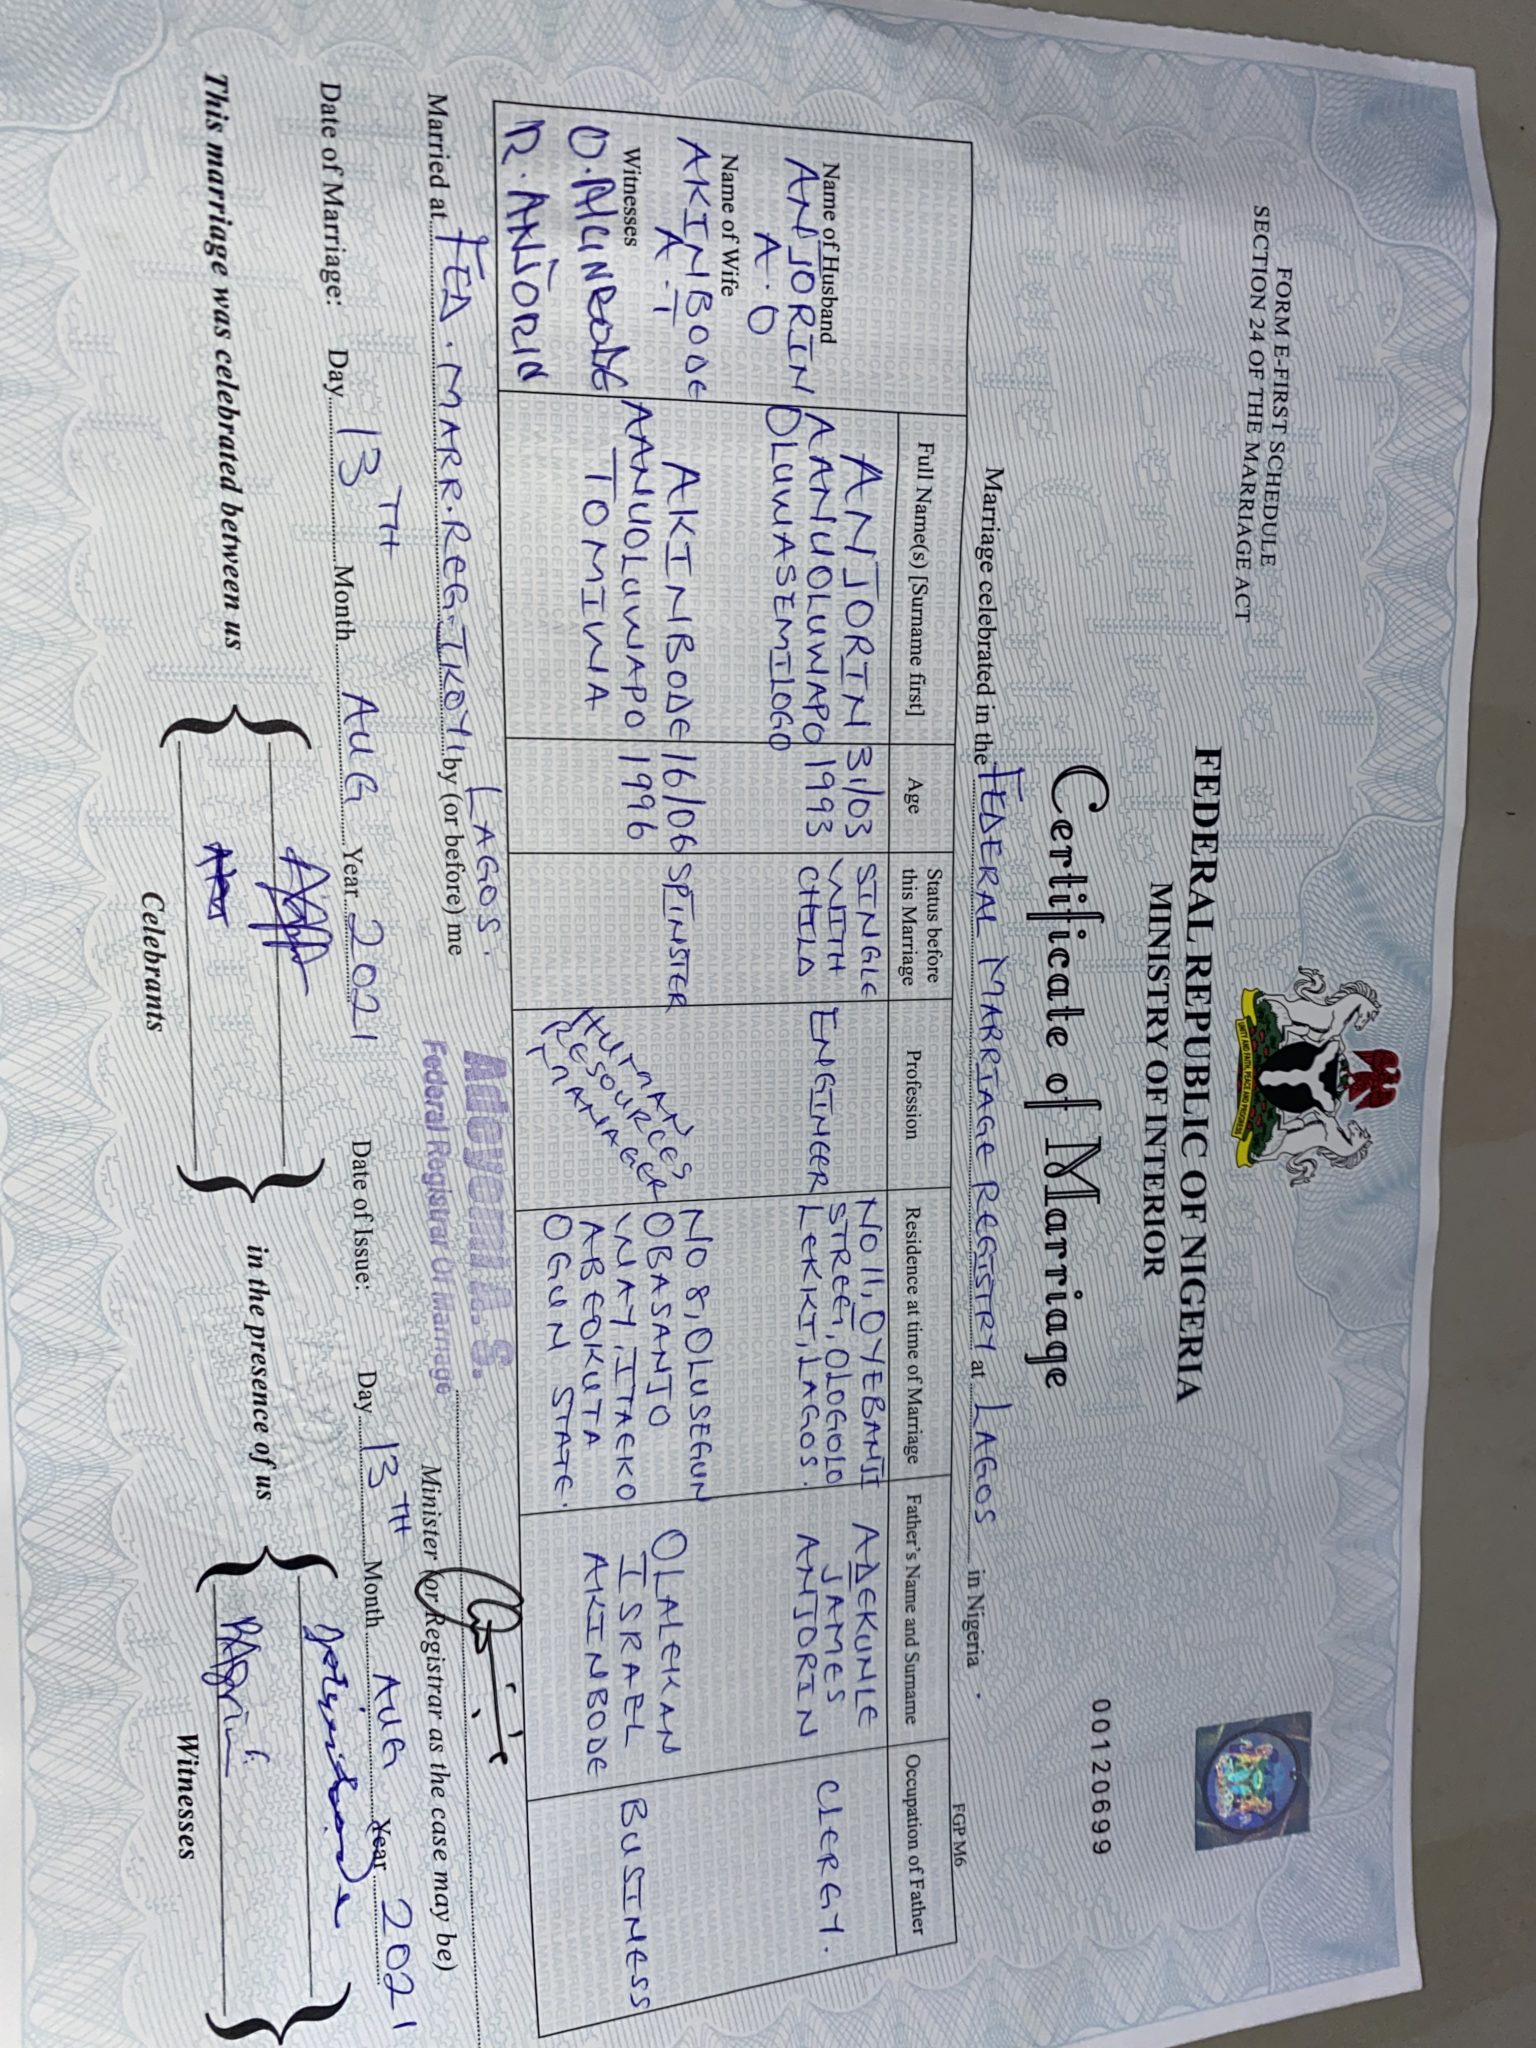 FORM E-FIRST SCHEDULE
SECTION 24 OF THE MARRIAGE ACT
UNITY AND FAITH, PEACE AND PROGRESS
FEDERAL REPUBLIC OF NIGERIA
MINISTRY OF INTERIOR
00120699
Certificate of Marriage
Marriage celebrated in the FEDERAL MARRIAGE REGISTRY at LAGOS in Nigeria
FGP M6
Full Name(s) [Surname first]
Age
Status before this Marriage
Profession
Residence at time of Marriage
Father's Name and Surname
Occupation of Father
Name of Husband
ANJORIN
A.O
ANJORIN
AANUOLUWAPO
OLUWASEMILOGO
31/03
1993
SINGLE
WITH
CHILD
ENGINEER
NO 11, OYEBANJI
STREET, OLOGOLO
LEKKI, LAGOS.
ADEKUNLE
JAMES
ANJORIN
CLERGY.
Name of Wife
AKINBODE
A.T
AKINBODE
AANUOLUWAPO
TOMIWA
16/06
1996
SPINSTER
HUMAN
RESOURCES
MANAGER
NO 8, OLUSEGUN
OBASANJO
WAY, ITAEKO
ABEOKUTA
OGUN STATE.
OLALEKAN
ISRAEL
AKINBODE
BUSINESS
Witnesses
O. AKINBODE
R. ANJORIN
Married at FED. MARR. REG. IKOYI LAGOS. by (or before) me
Adeyemi A. S.
Federal Registrar Of Marriage
Minister (or Registrar as the case may be)
Date of Marriage: Day 13TH Month AUG Year 2021 Date of Issue: Day 13TH Month AUG Year 2021
This marriage was celebrated between us
in the presence of us
Celebrants
Witnesses